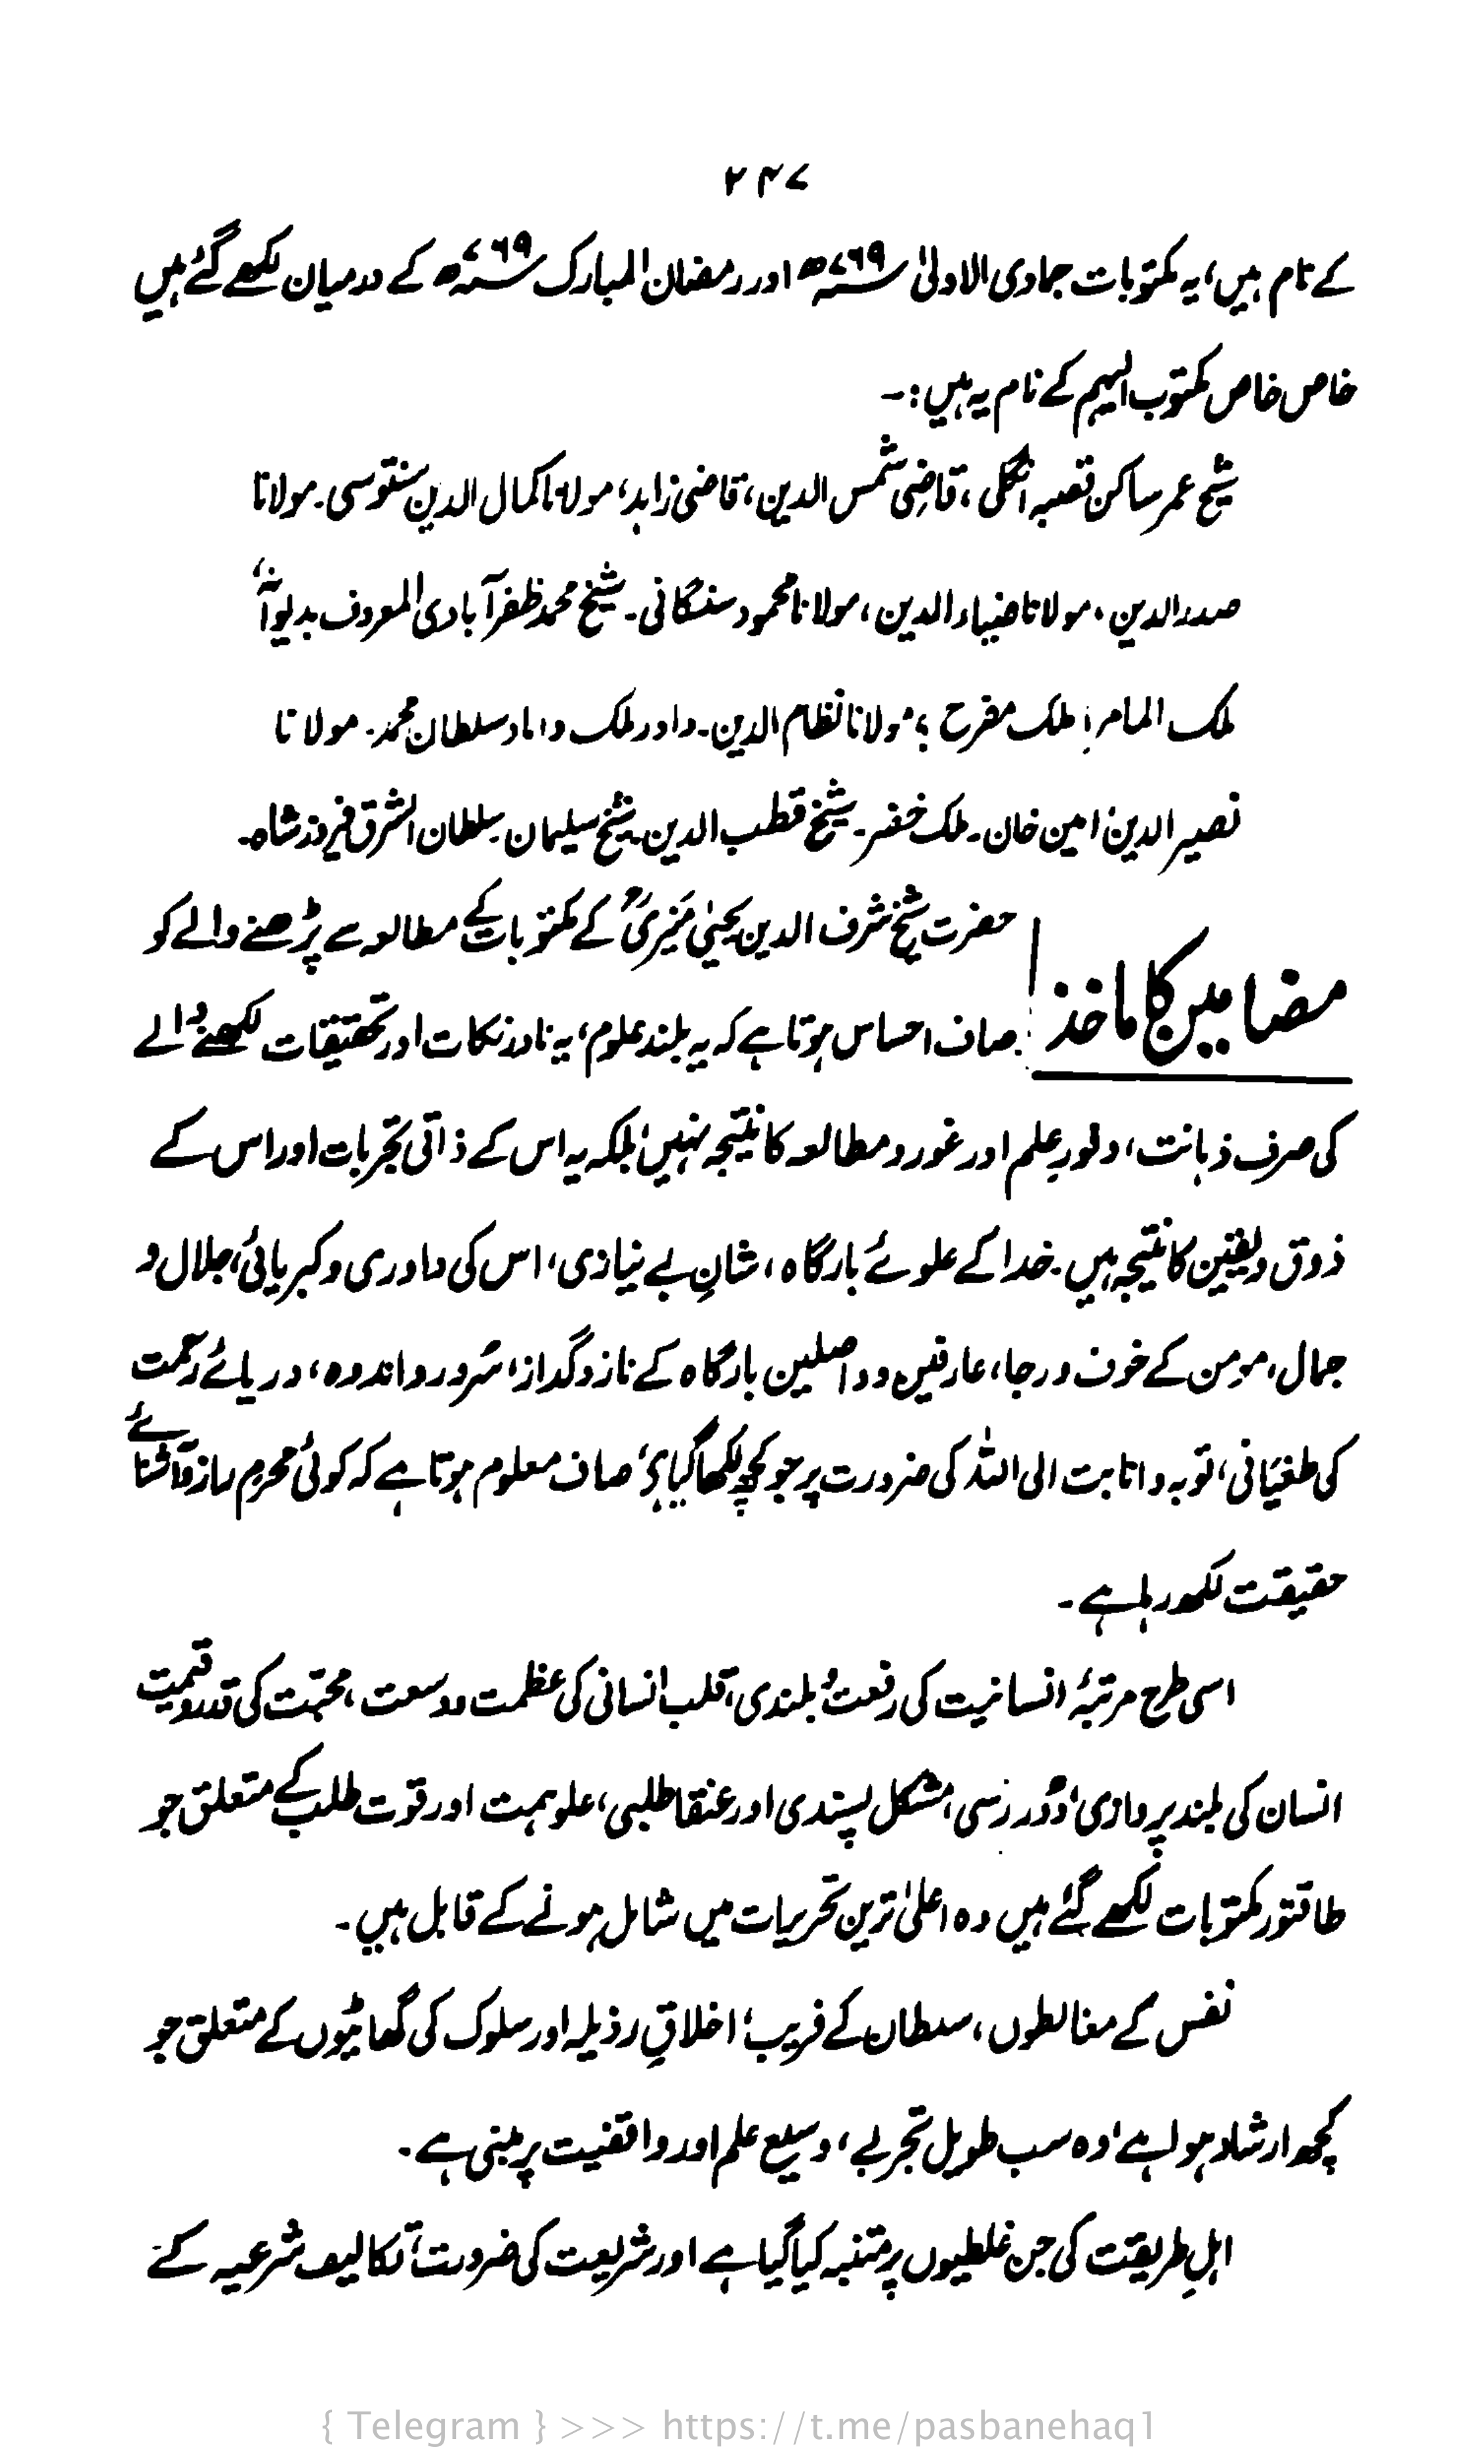 ۲۴۷
کے نام ہیں، یہ مکتوبات جمادی الاولیٰ ۷۶۹ھ اور رمضان المبارک ۷۶۹ھ کے درمیان لکھے گئے ہیں
خاص خاص مکتوب الیہم کے نام یہ ہیں :۔
شیخ عمر ساکن قصبہ انگلی، قاضی شمس الدین، قاضی زاہد، مولانا کمال الدین سنتوسی۔ مولانا
صدر الدین، مولانا ضیاء الدین، مولانا محمود سنگانی۔ شیخ محمد ظفر آبادی المعروف بدیوانہ،
ملک المامر، ملک مفرح، مولانا نظام الدین۔ داور ملک داماد سلطان محمد۔ مولانا
نصیر الدین، امین خان۔ ملک خضر۔ شیخ قطب الدین۔ شیخ سلیمان۔ سلطان الشرق فیروز شاہ۔
مضامین کا ماخذ
حضرت شیخ شرف الدین یحییٰ مَنیَریؒ کے مکتوبات کے مطالعہ سے پڑھنے والے کو
صاف احساس ہوتا ہے کہ یہ بلند علوم، یہ نادر نکات اور تحقیقات لکھنے والے
کی صرف ذہانت، وفورِ علم اور غور و مطالعہ کا نتیجہ نہیں، بلکہ یہ اس کے ذاتی تجربات اور اس کے
ذوق و یقین کا نتیجہ ہیں۔ خدا کے علوئے بارگاہ، شانِ بے نیازی، اس کی داوری و کبریائی، جلال و
جمال، مومن کے خوف و رجا، عارفین و واصلین بارگاہ کے ناز و گداز، سُرور و اندوہ، دریائے رحمت
کی طغیانی، توبہ و انابت الی اللہ کی ضرورت پر جو کچھ لکھا گیا ہے، صاف معلوم ہوتا ہے کہ کوئی محرمِ راز و آشنائے
حقیقت لکھ رہا ہے۔
اسی طرح مرتبۂ انسانیت کی رفعت و بلندی، قلب انسانی کی عظمت و وسعت، محبّت کی قدر و قیمت
انسان کی بلند پروازی، دُور رَسی، مشکل پسندی اور عنقا طلبی، علو ہمت اور قوت طلب کے متعلق جو
طاقتور مکتوبات لکھے گئے ہیں وہ اعلیٰ ترین تحریرات میں شامل ہونے کے قابل ہیں۔
نفس کے مغالطوں، سلطان کے فریب، اخلاقِ رذیلہ اور سلوک کی گھاٹیوں کے متعلق جو
کچھ ارشاد ہوا ہے، وہ سب طویل تجربے، وسیع علم اور واقفیت پر مبنی ہے۔
اہلِ طریقت کی جن غلطیوں پر متنبہ کیا گیا ہے اور شریعت کی ضرورت، تکالیف شرعیہ کے
{ Telegram } >>> https://t.me/pasbanehaq1